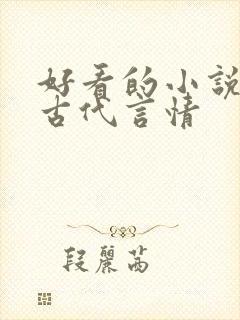 好看的小說
古代言情
段麗茜